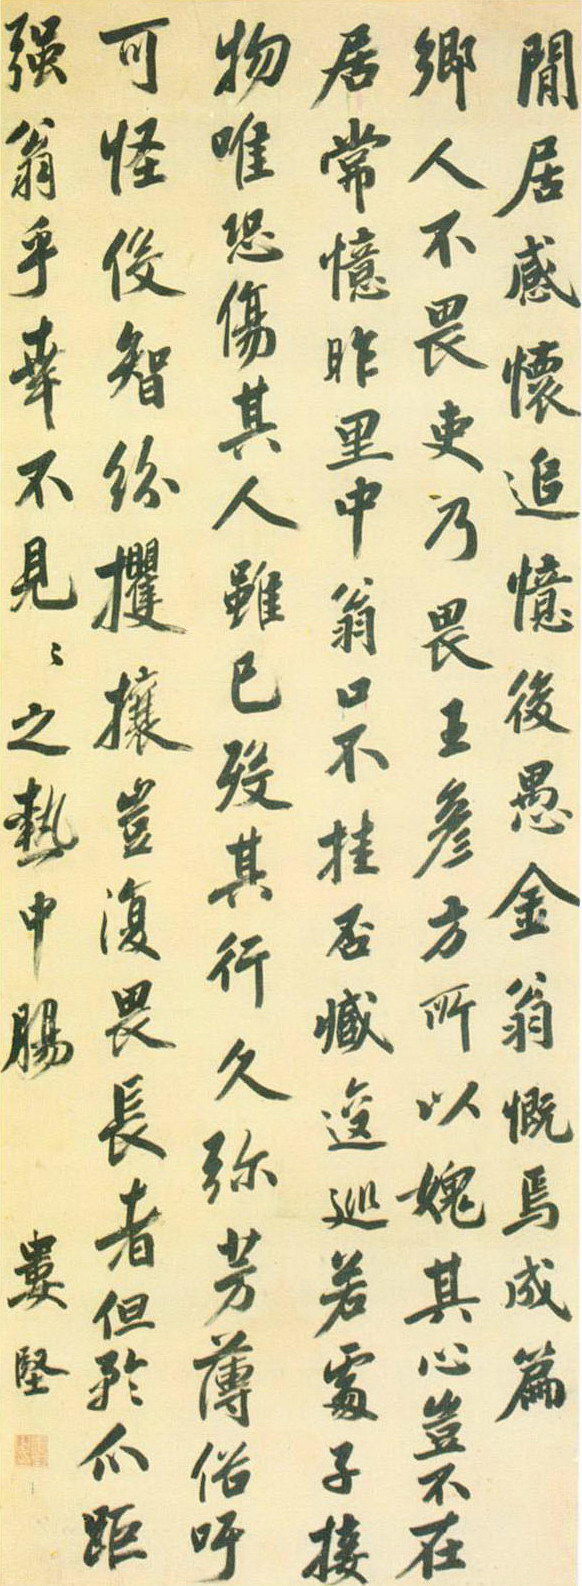 閒居感懷追憶後愚金翁慨焉成篇
鄉人不畏吏乃畏王彥方所以媿其心豈不在
居常憶昨里中翁口不挂否臧逡巡若處子接
物唯恐傷其人雖已歿其行久弥芳薄俗吁
可怪俊智紛攫攘豈復畏長者但矜爪距
强翁乎幸不見見之熱中腸
婁堅